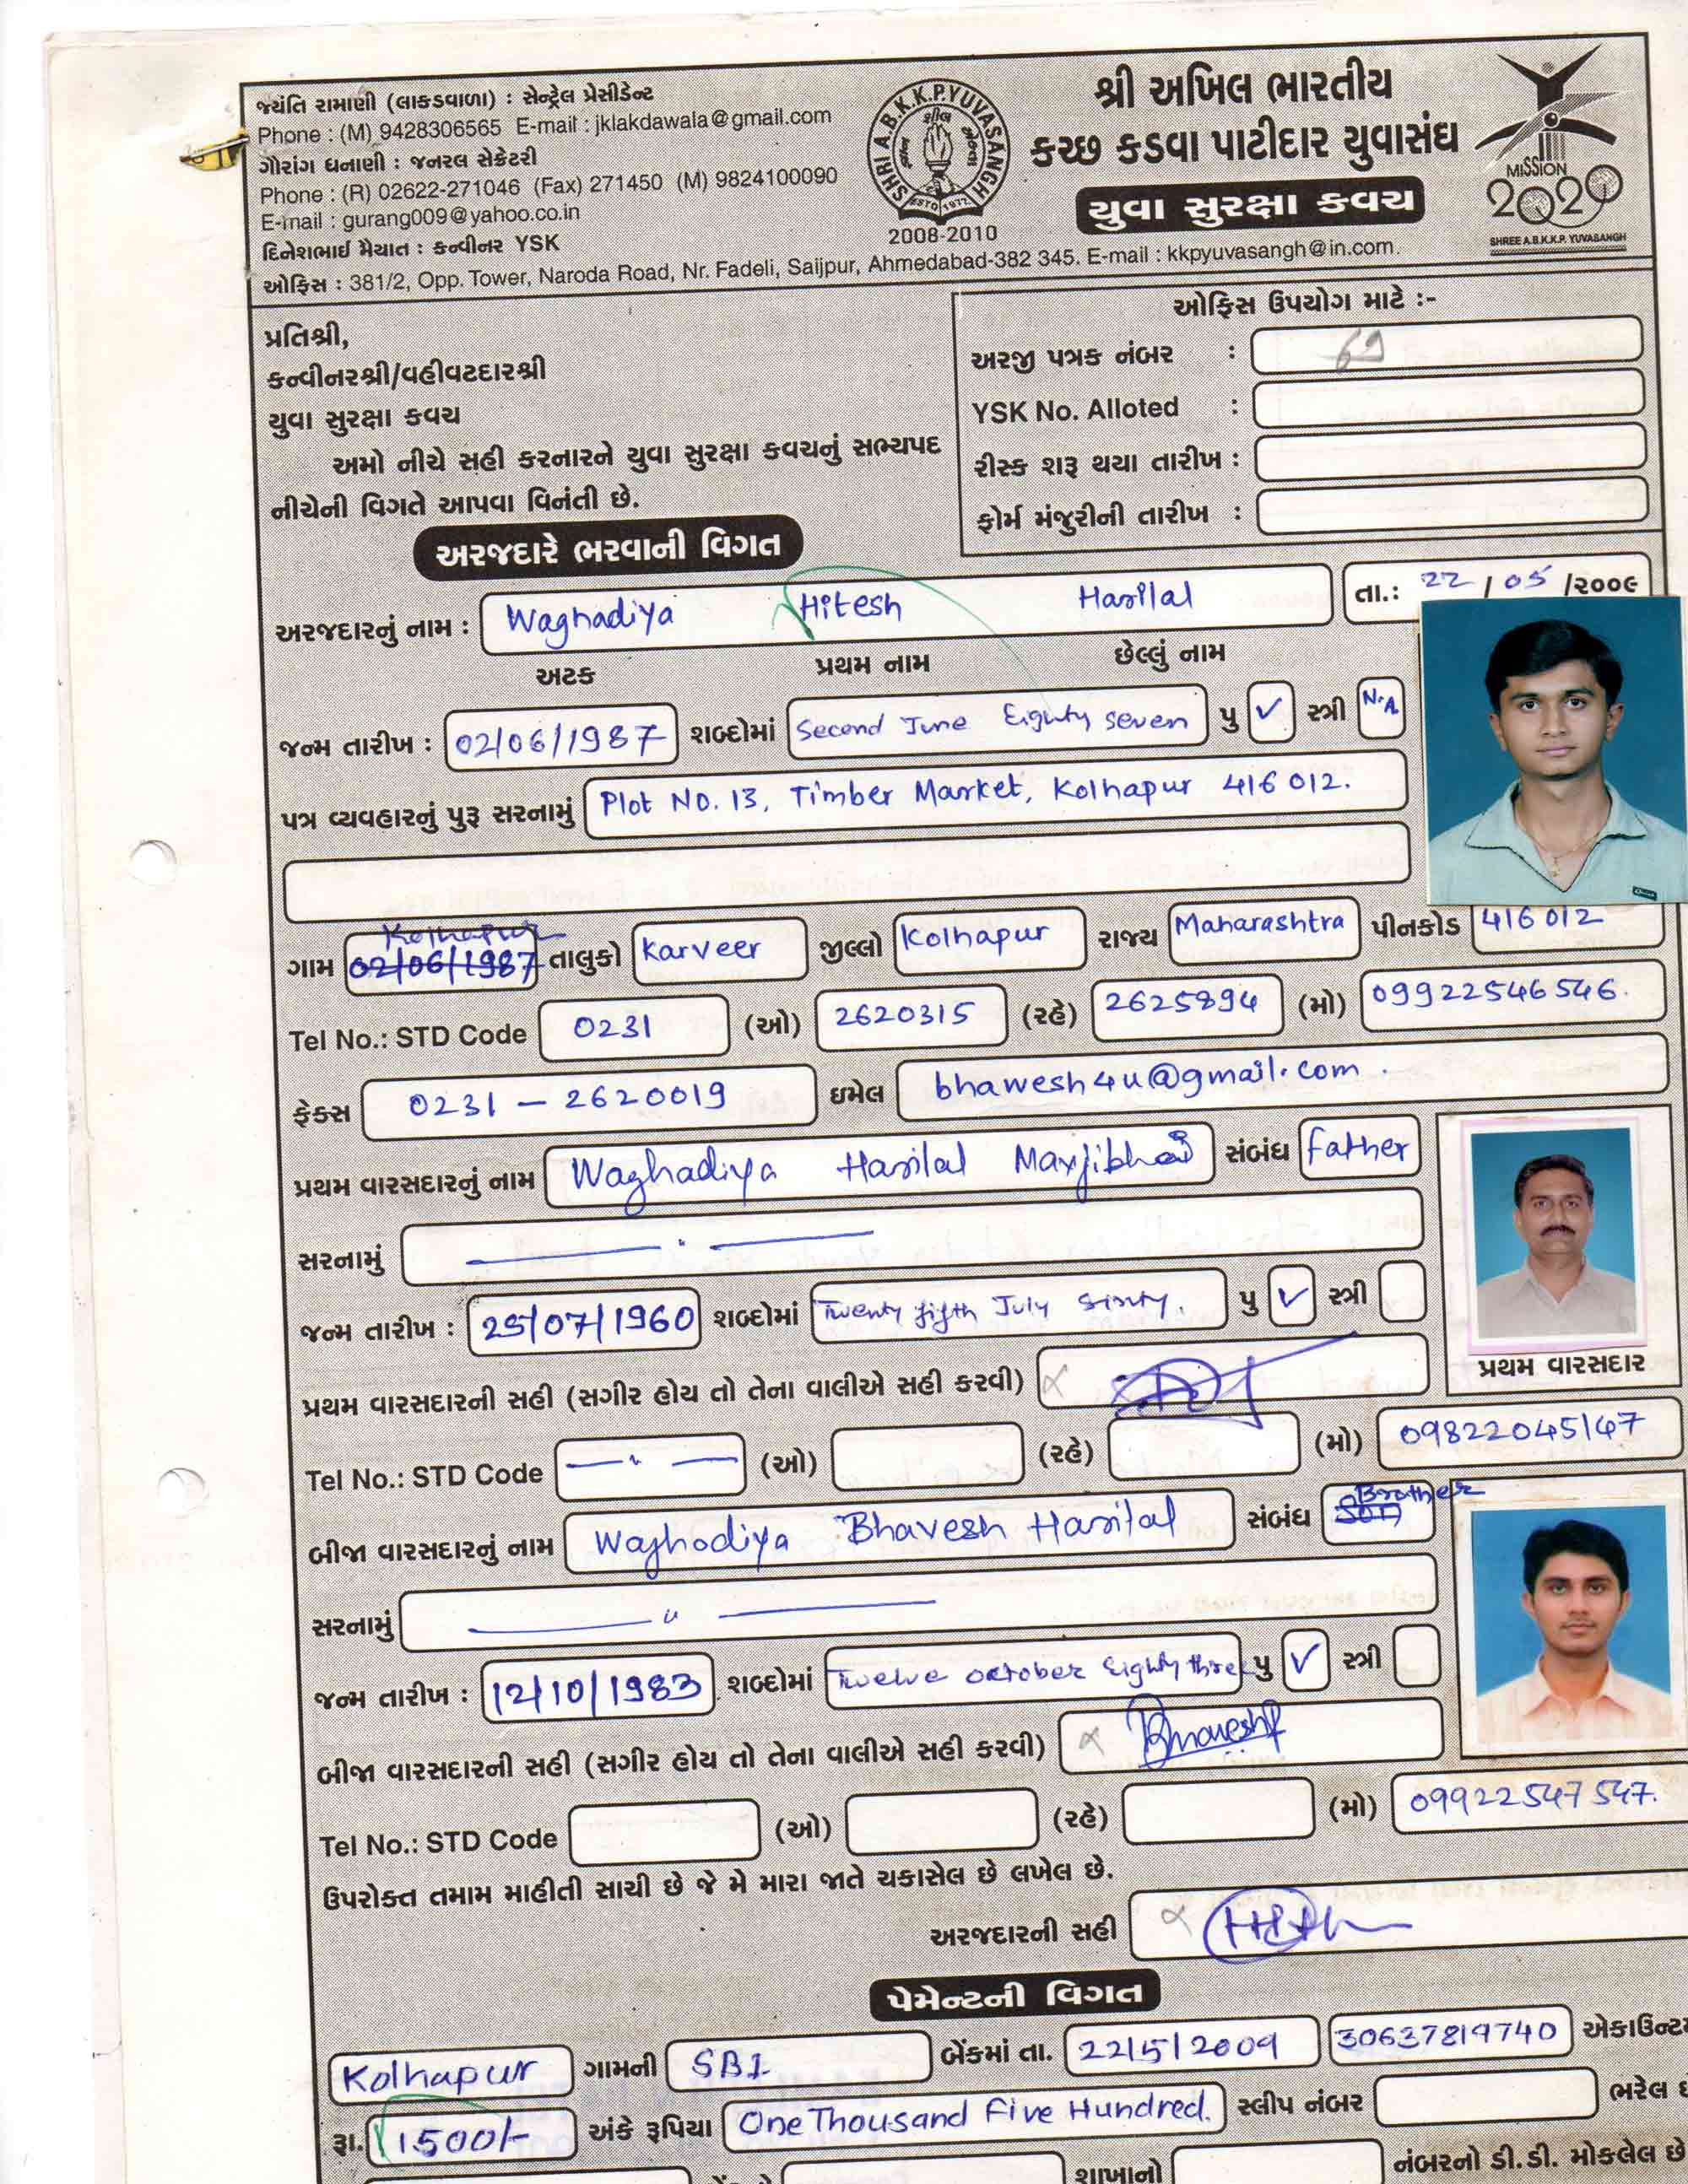 જયંતિ રામાણી (લાકડવાળા) : સેન્ટ્રેલ પ્રેસીડેન્ટ
Phone : (M) 9428306565 E-mail : jklakdawala@gmail.com
ગૌરાંગ ધનાણી : જનરલ સેક્રેટરી
Phone : (R) 02622-271046 (Fax) 271450 (M) 9824100090
E-mail : gurang009@yahoo.co.in
દિનેશભાઈ મૈયાત : કન્વીનર YSK
ઓફિસ : 381/2, Opp. Tower, Naroda Road, Nr. Fadeli, Saijpur, Ahmedabad-382 345. E-mail : kkpyuvasangh@in.com.
SHRI A.B.K.K.P. YUVASANGH
ESTD. 1977
2008-2010
શ્રી અખિલ ભારતીય
કચ્છ કડવા પાટીદાર યુવાસંઘ
યુવા સુરક્ષા કવચ
MISSION
2020
SHREE A.B.K.K.P. YUVASANGH
પ્રતિશ્રી,
કન્વીનરશ્રી/વહીવટદારશ્રી
યુવા સુરક્ષા કવચ
અમો નીચે સહી કરનારને યુવા સુરક્ષા કવચનું સભ્યપદ
નીચેની વિગતે આપવા વિનંતી છે.
ઓફિસ ઉપયોગ માટે :-
અરજી પત્રક નંબર :
YSK No. Alloted :
રીસ્ક શરૂ થયા તારીખ :
ફોર્મ મંજુરીની તારીખ :
અરજદારે ભરવાની વિગત
અરજદારનું નામ : Waghadiya Hitesh Harilal તા.: 22 / 05 /૨૦૦૯
અટક પ્રથમ નામ છેલ્લું નામ
જન્મ તારીખ : 02/06/1987 શબ્દોમાં Second June Eighty seven પુ ✓ સ્ત્રી N.A.
પત્ર વ્યવહારનું પુરૂ સરનામું Plot No. 13, Timber Market, Kolhapur 416 012.
ગામ Kolhapur 02/06/1987 તાલુકો Karveer જીલ્લો Kolhapur રાજ્ય Maharashtra પીનકોડ 416 012
Tel No.: STD Code 0231 (ઓ) 2620315 (રહે) 2625894 (મો) 09922546546.
ફેક્સ 0231 - 2620019 ઇમેલ bhawesh4u@gmail.com .
પ્રથમ વારસદારનું નામ Waghadiya Harilal Mavjibhai સંબંધ Father
સરનામું — " —
જન્મ તારીખ : 25/07/1960 શબ્દોમાં Twenty fifth July sixty. પુ ✓ સ્ત્રી
પ્રથમ વારસદાર
પ્રથમ વારસદારની સહી (સગીર હોય તો તેના વાલીએ સહી કરવી)
Tel No.: STD Code — " — (ઓ) (રહે) (મો) 09822045147
બીજા વારસદારનું નામ Waghodiya Bhavesh Harilal સંબંધ Son Brother
સરનામું — " —
જન્મ તારીખ : 12/10/1983 શબ્દોમાં Twelve october Eighty three પુ ✓ સ્ત્રી
બીજા વારસદારની સહી (સગીર હોય તો તેના વાલીએ સહી કરવી) Bhavesh
Tel No.: STD Code (ઓ) (રહે) (મો) 09922547547.
ઉપરોક્ત તમામ માહીતી સાચી છે જે મે મારા જાતે ચકાસેલ છે લખેલ છે.
અરજદારની સહી
પેમેન્ટની વિગત
Kolhapur ગામની SBI બેંકમાં તા. 22/5/2009 30637819740 એકાઉન્ટ
રૂા. 1500/- અંકે રૂપિયા One Thousand Five Hundred. સ્લીપ નંબર ભરેલ
શાખાનો નંબરનો ડી.ડી. મોકલેલ છે